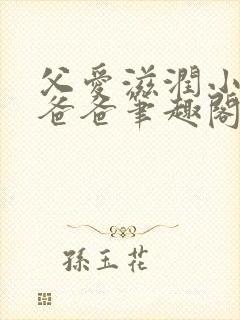 父愛滋潤小
爸爸筆趣閣
孫玉花